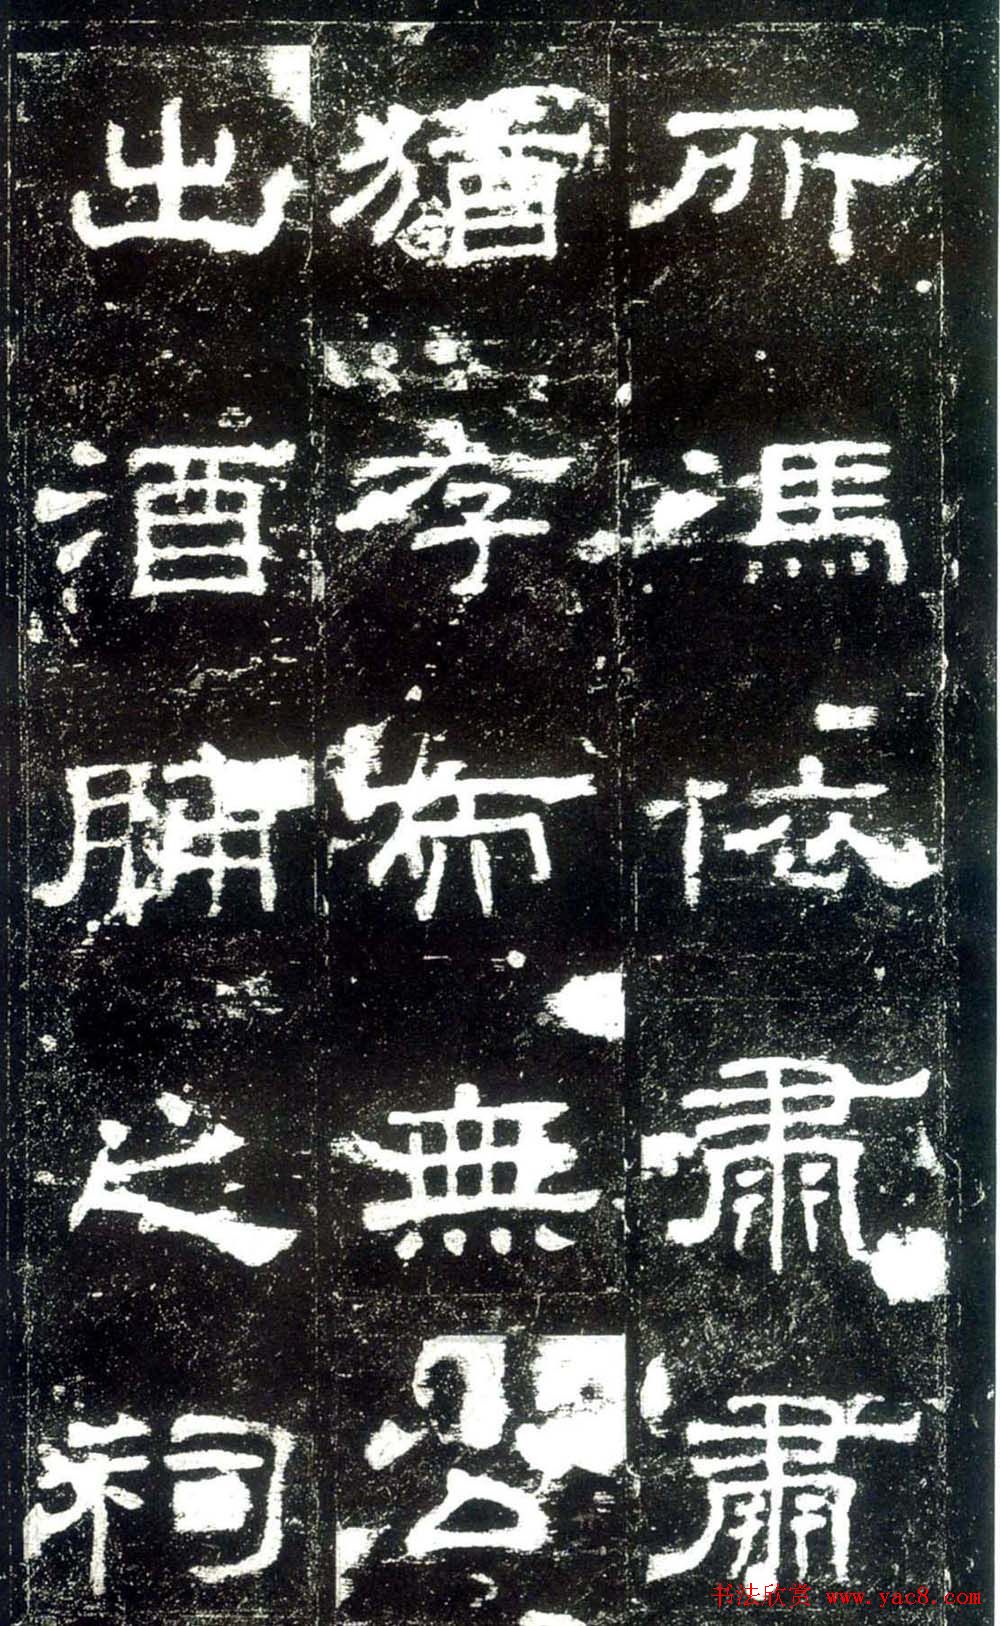 所馮依肅肅
猶存而無公
出酒脯之祠
书法欣赏 www.yac8.com